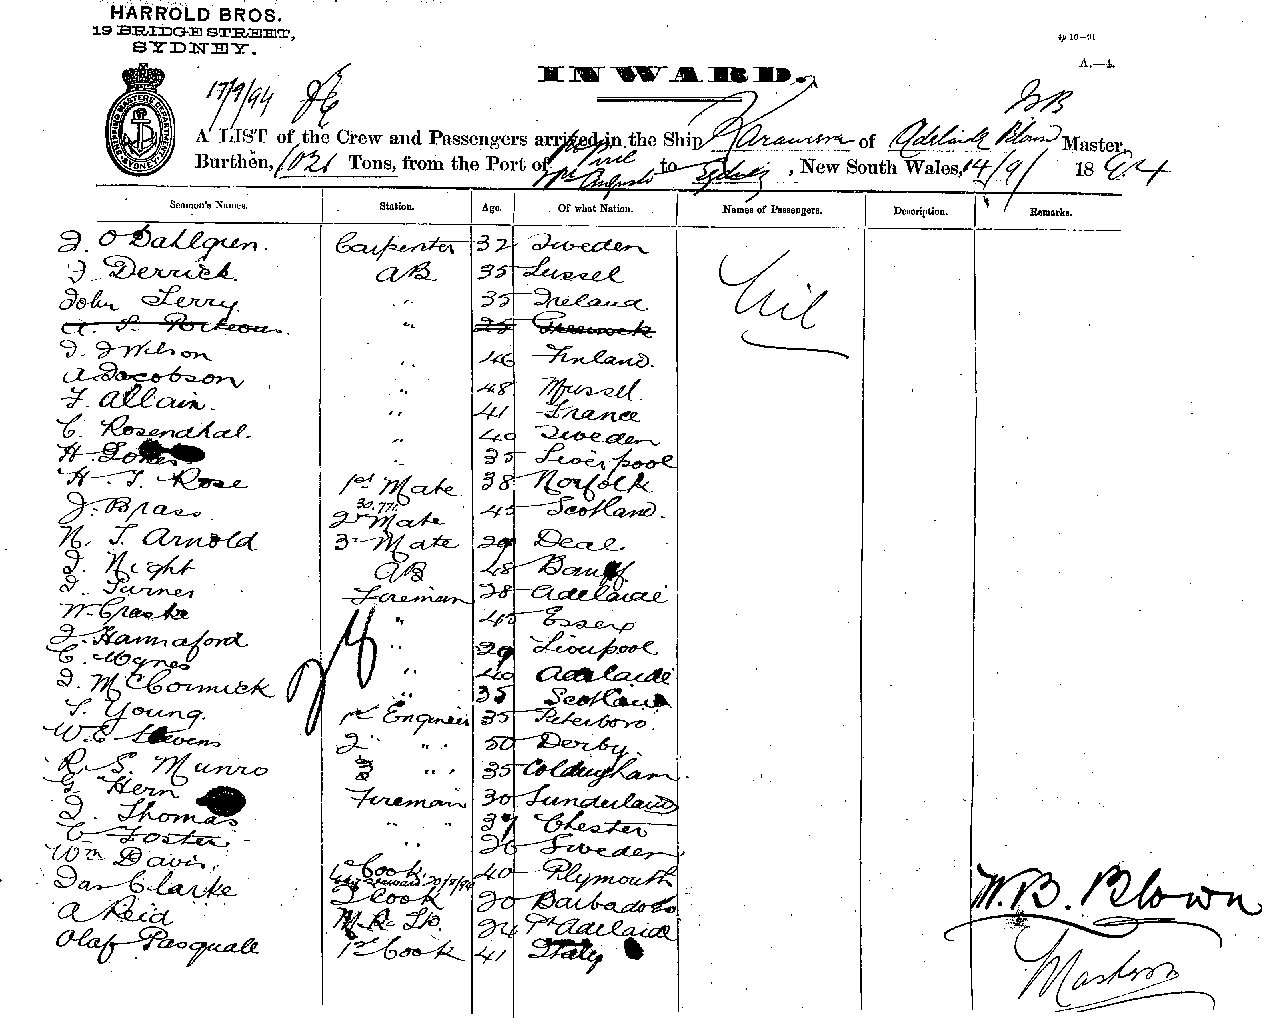 HARROLD BROS.
19 BRIDGE STREET,
SYDNEY.
4p 10—91
A.—4.
INWARD.
17/9/94
WB
A LIST of the Crew and Passengers arrived in the Ship Kararoom of Adelaide Blown Master,
Burthen, 1021 Tons, from the Port of Pirie
Pt Augusta to Sydney, New South Wales, 14/9/ 1894
SHIPPING MASTERS DEPARTMENT SYDNEY
Seamen's Names. Station. Age. Of what Nation. Names of Passengers. Description. Remarks.
J. O Dahlgren. Carpenter 32 Sweden
J. Derrick AB 35 Sussex
John Terry " 35 Ireland
Nil
A. S. Porteous " 25 Greenock
J. J Wilson " 46 Finland.
A Jacobson " 48
F. Allain. " 41 France
C. Rosendhal. " 40 Sweden
H. Jones " 35 Liverpool
H. T. Rose 1st Mate 38 Norfolk
J. Brass 2nd Mate 45 Scotland.
N. T. Arnold 3rd Mate 29 Deal
J. Night AB 48 Banff
J. Turner Fireman 28 Adelaide
W. Craske " 45 Essex
J. Hannaford " 29 Liverpool
C. " 40 Adelaide
J. McCormick " 35 Scotland
T. Young. 1st Engineer 35 Peterboro.
W. E Stevens 2 " 50 Derby.
R. S. Munro 3 " 35 Coldingham
G Hern Fireman 30 Sunderland
J. Thomas " 37 Chester
C Foster " 26 Sweden
Wm Davis Cook 40 Plymouth
Jas Clarke 2 Cook 20 Barbadoes
A Reid M. R. S. 24 Pt Adelaide
Olaf Pasquale 1st Cook 41 Italy
W. B. Blown
Master